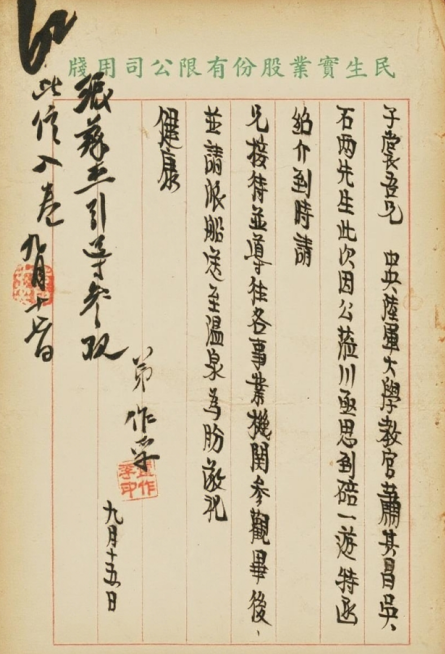 民生實業股份有限公司用牋
吾兄 中央陸軍大學教官蕭其昌吳
石兩先生此次因公蒞川亟思到碚一遊特函
紹介到時請
兄接待並導往各事業機関參觀畢後、
並請派船送至溫泉為盼敬祝
健康
弟 作孚
作孚印
九月十五日
引導參观
此信入卷 九月